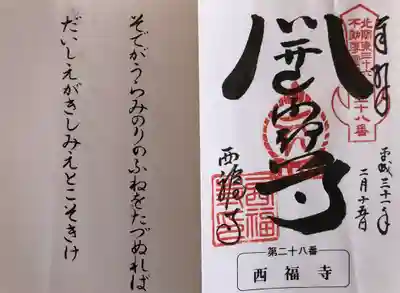 奉拝
平成三十一年
二月十五日
北関東三十六
不動尊
二十八番
西福寺
西福寺
第二十八番
西福寺
そでがうらみのりのふねをたづぬれば
だいしえがきしみえとこそきけ